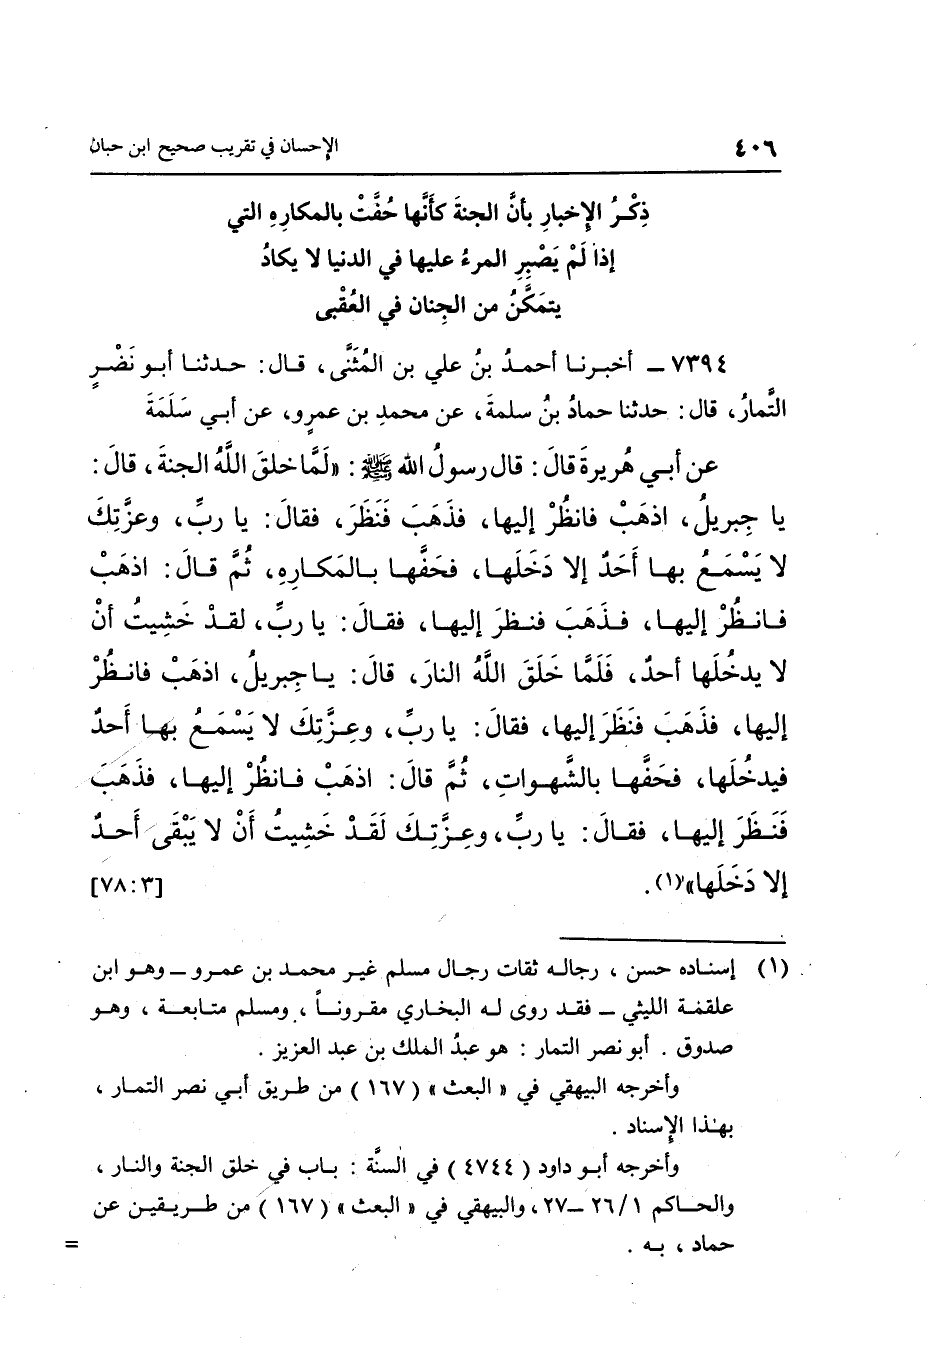 ٤٠٦ الإحسان في تقريب صحيح ابن حبان
ذِكْرُ الإِخبارِ بأنَّ الجنةَ كأنَّها حُفَّتْ بالمكارِهِ التي
إذا لَمْ يَصْبِرِ المرءُ عليها في الدنيا لا يكادُ
يتمَكَّنُ من الجِنان في العُقْبى
٧٣٩٤ ــ أخبرنا أحمدُ بنُ علي بن المُثَنَّى، قال: حدثنا أبو نَصْرٍ
التَّمارُ، قال: حدثنا حمادُ بنُ سلمةَ، عن محمدِ بن عمرٍو، عن أبي سَلَمَةَ
عن أبي هُريرةَ قالَ: قال رسولُ الله ﷺ: «لَمَّا خلقَ اللَّهُ الجنةَ، قال:
يا جِبريلُ، اذهَبْ فانظُرْ إليها، فذَهَبَ فَنَظَرَ، فقالَ: يا ربِّ، وعزَّتِكَ
لا يَسْمَعُ بها أَحَدٌ إلا دَخَلَها، فحَفَّها بالمَكارِهِ، ثُمَّ قالَ: اذهَبْ
فانظُرْ إليها، فذَهَبَ فنظرَ إليها، فقالَ: يا ربِّ، لقدْ خَشِيتُ أنْ
لا يدخُلَها أحدٌ، فَلَمَّا خَلَقَ اللَّهُ النارَ، قالَ: يا جِبريلُ، اذهَبْ فانظُرْ
إليها، فذَهَبَ فَنَظَرَ إليها، فقالَ: يا ربِّ، وعِزَّتِكَ لا يَسْمَعُ بها أَحدٌ
فيدخُلَها، فحَفَّها بالشَّهواتِ، ثُمَّ قالَ: اذهَبْ فانظُرْ إليها، فذَهَبَ
فَنَظَرَ إليها، فقالَ: يا ربِّ، وعِزَّتِكَ لَقَدْ خَشِيتُ أَنْ لا يَبْقَى أَحدٌ
إلا دَخَلَها»(١). [٣: ٧٨]
(١) إسناده حسن ، رجاله ثقات رجال مسلم غير محمد بن عمرو ــ وهو ابن
علقمة الليثي ــ فقد روى له البخاري مقروناً ، ومسلم متابعة ، وهو
صدوق . أبو نصر التمار : هو عبدُ الملك بن عبد العزيز .
وأخرجه البيهقي في « البعث » ( ١٦٧ ) من طريق أبي نصر التمار ،
بهذا الإِسناد .
وأخرجه أبو داود ( ٤٧٤٤ ) في السنَّة : باب في خلق الجنة والنار ،
والحاكم ٢٦/١ ــ٢٧، والبيهقي في « البعث » ( ١٦٧ ) من طريقين عن
حماد ، به . =